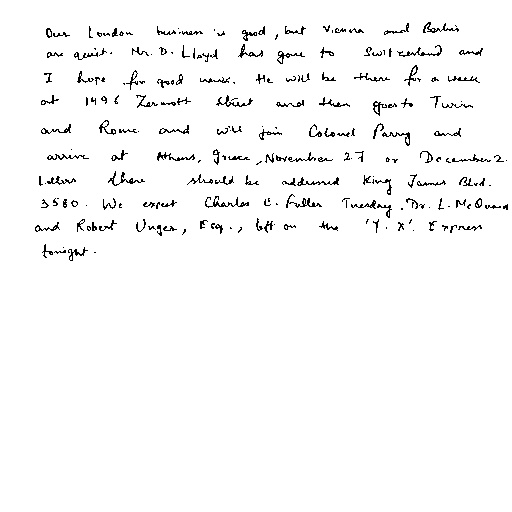 Our London business is good, but Vienna and Berlin
are quiet. Mr. D. Lloyd has gone to Switzerland and
I hope for good news. He will be there for a week
at 1496 Zermott Street and then goes to Turin
and Rome and will join Colonel Parry and
arrive at Athens, Greece, November 27 or December 2.
Letters there should be addressed King James Blvd.
3580. We expect Charles E. Fuller Tuesday. Dr. L. McQuaid
and Robert Unger, Esq., left on the 'Y. X'. Express
tonight.